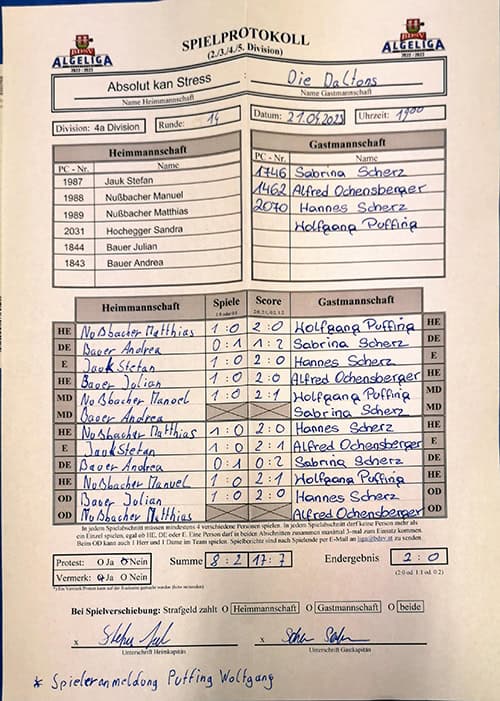 BDSV
ALGELIGA
2022 - 2023
SPIELPROTOKOLL
(2./3./4./5. Division)
BDSV
ALGELIGA
2022 - 2023
Absolut kan Stress : Die Daltons
Name Heimmannschaft Name Gastmannschaft
Division: 4a Division Runde: 14 Datum: 21.04.2023 Uhrzeit: 1900
Heimmannschaft
PC - Nr. Name
1987 Jauk Stefan
1988 Nußbacher Manuel
1989 Nußbacher Matthias
2031 Hochegger Sandra
1844 Bauer Julian
1843 Bauer Andrea
Gastmannschaft
PC - Nr. Name
1746 Sabrina Scherz
1462 Alfred Ochensberger
2070 Hannes Scherz
Wolfgang Puffing
Heimmannschaft Spiele Score Gastmannschaft
HE Nußbacher Matthias 1 : 0 2 : 0 Wolfgang Puffing HE
DE Bauer Andrea 0 : 1 1 : 2 Sabrina Scherz DE
E Jauk Stefan 1 : 0 2 : 0 Hannes Scherz E
HE Bauer Julian 1 : 0 2 : 0 Alfred Ochensberger HE
MD Nußbacher Manuel 1 : 0 2 : 1 Wolfgang Puffing MD
MD Bauer Andrea Sabrina Scherz MD
HE Nußbacher Matthias 1 : 0 2 : 0 Hannes Scherz HE
E Jauk Stefan 1 : 0 2 : 1 Alfred Ochensberger E
DE Bauer Andrea 0 : 1 0 : 2 Sabrina Scherz DE
HE Nußbacher Manuel 1 : 0 2 : 1 Wolfgang Puffing HE
OD Bauer Julian 1 : 0 2 : 0 Hannes Scherz OD
OD Nußbacher Matthias Alfred Ochensberger OD
In jedem Spielabschnitt müssen mindestens 4 verschiedene Personen spielen. In jedem Spielabschnitt darf keine Person mehr als
ein Einzel spielen, egal ob HE, DE oder E. Eine Person darf in beiden Abschnitten zusammen maximal 3-mal zum Einsatz kommen.
Beim OD kann auch 1 Herr und 1 Dame im Team spielen. Spielberichte sind nach Spielende per E-Mail an liga@bdsv.at zu senden.
Protest: O Ja O Nein Summe 8 : 2 17 : 7 Endergebnis 2 : 0
Vermerk: O Ja O Nein (2:0 od. 1:1 od. 0:2)
Bei Spielverschiebung: Strafgeld zahlt O Heimmannschaft O Gastmannschaft O beide
x x
Unterschrift Heimkapitän Unterschrift Gastkapitän
* Spieleranmeldung Puffing Wolfgang